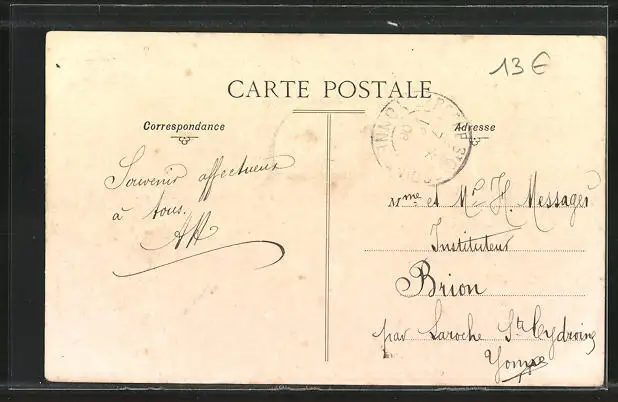 13 €
CARTE POSTALE
Correspondance
Adresse
Souvenir affectueux
à tous.
AH
Mme et Mr H. Messager
Instituteur
Brion
par Laroche St Cydroine
Yonne